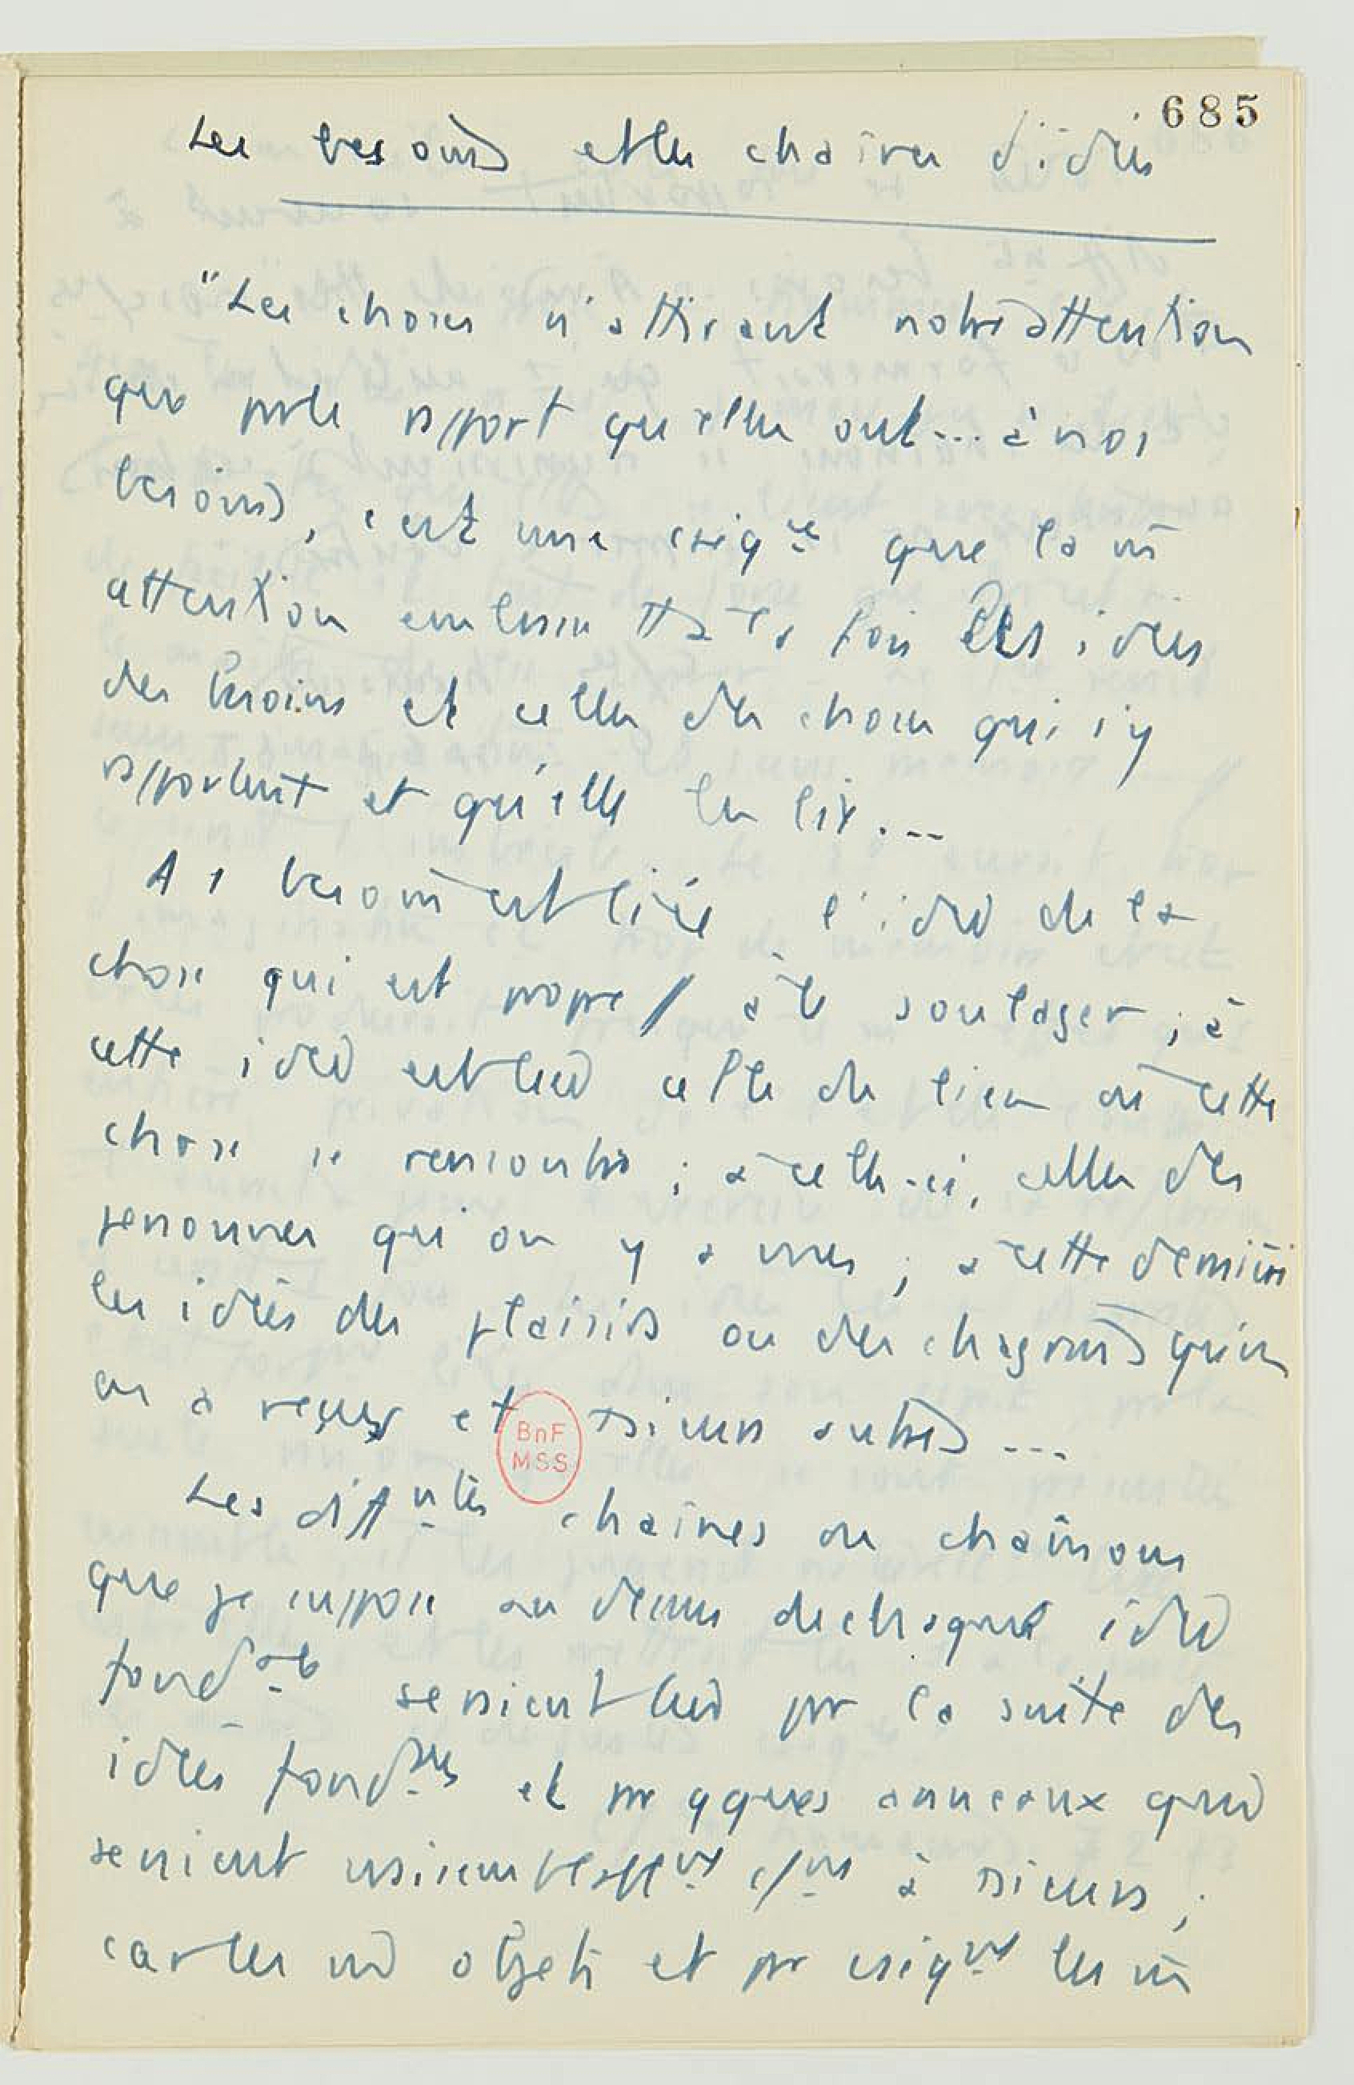 685
Les besoins et les chaînes d'idées
"Les choses n'attirent notre attention
que par le rapport qu'elles ont... à nos
besoins, c'est une cséq.ce que la m̄
attention embrasse tt à la fois les idées
des besoins et celles des choses qui s'y
rapportent et qu'elle les lie...
A 1 besoin est liée l'idée de la
chose qui est propre à le soulager ; à
cette idée est liée celle du lieu où cette
chose se rencontre ; à celle-ci, celle des
personnes qu'on y a vues ; à cette dernière
les idées des plaisirs ou des chagrins qu'on
en a reçus et
BnF
MSS
autres ...
Les difftes chaînes ou chaînons
que je suppose au dessus de chaque idée
fondale seraient liées pr la suite des
idées fondales et pr qques anneaux qui
seraient vraisemblablt cns à ;
car les m̄ objets et pr cséqt les m̄